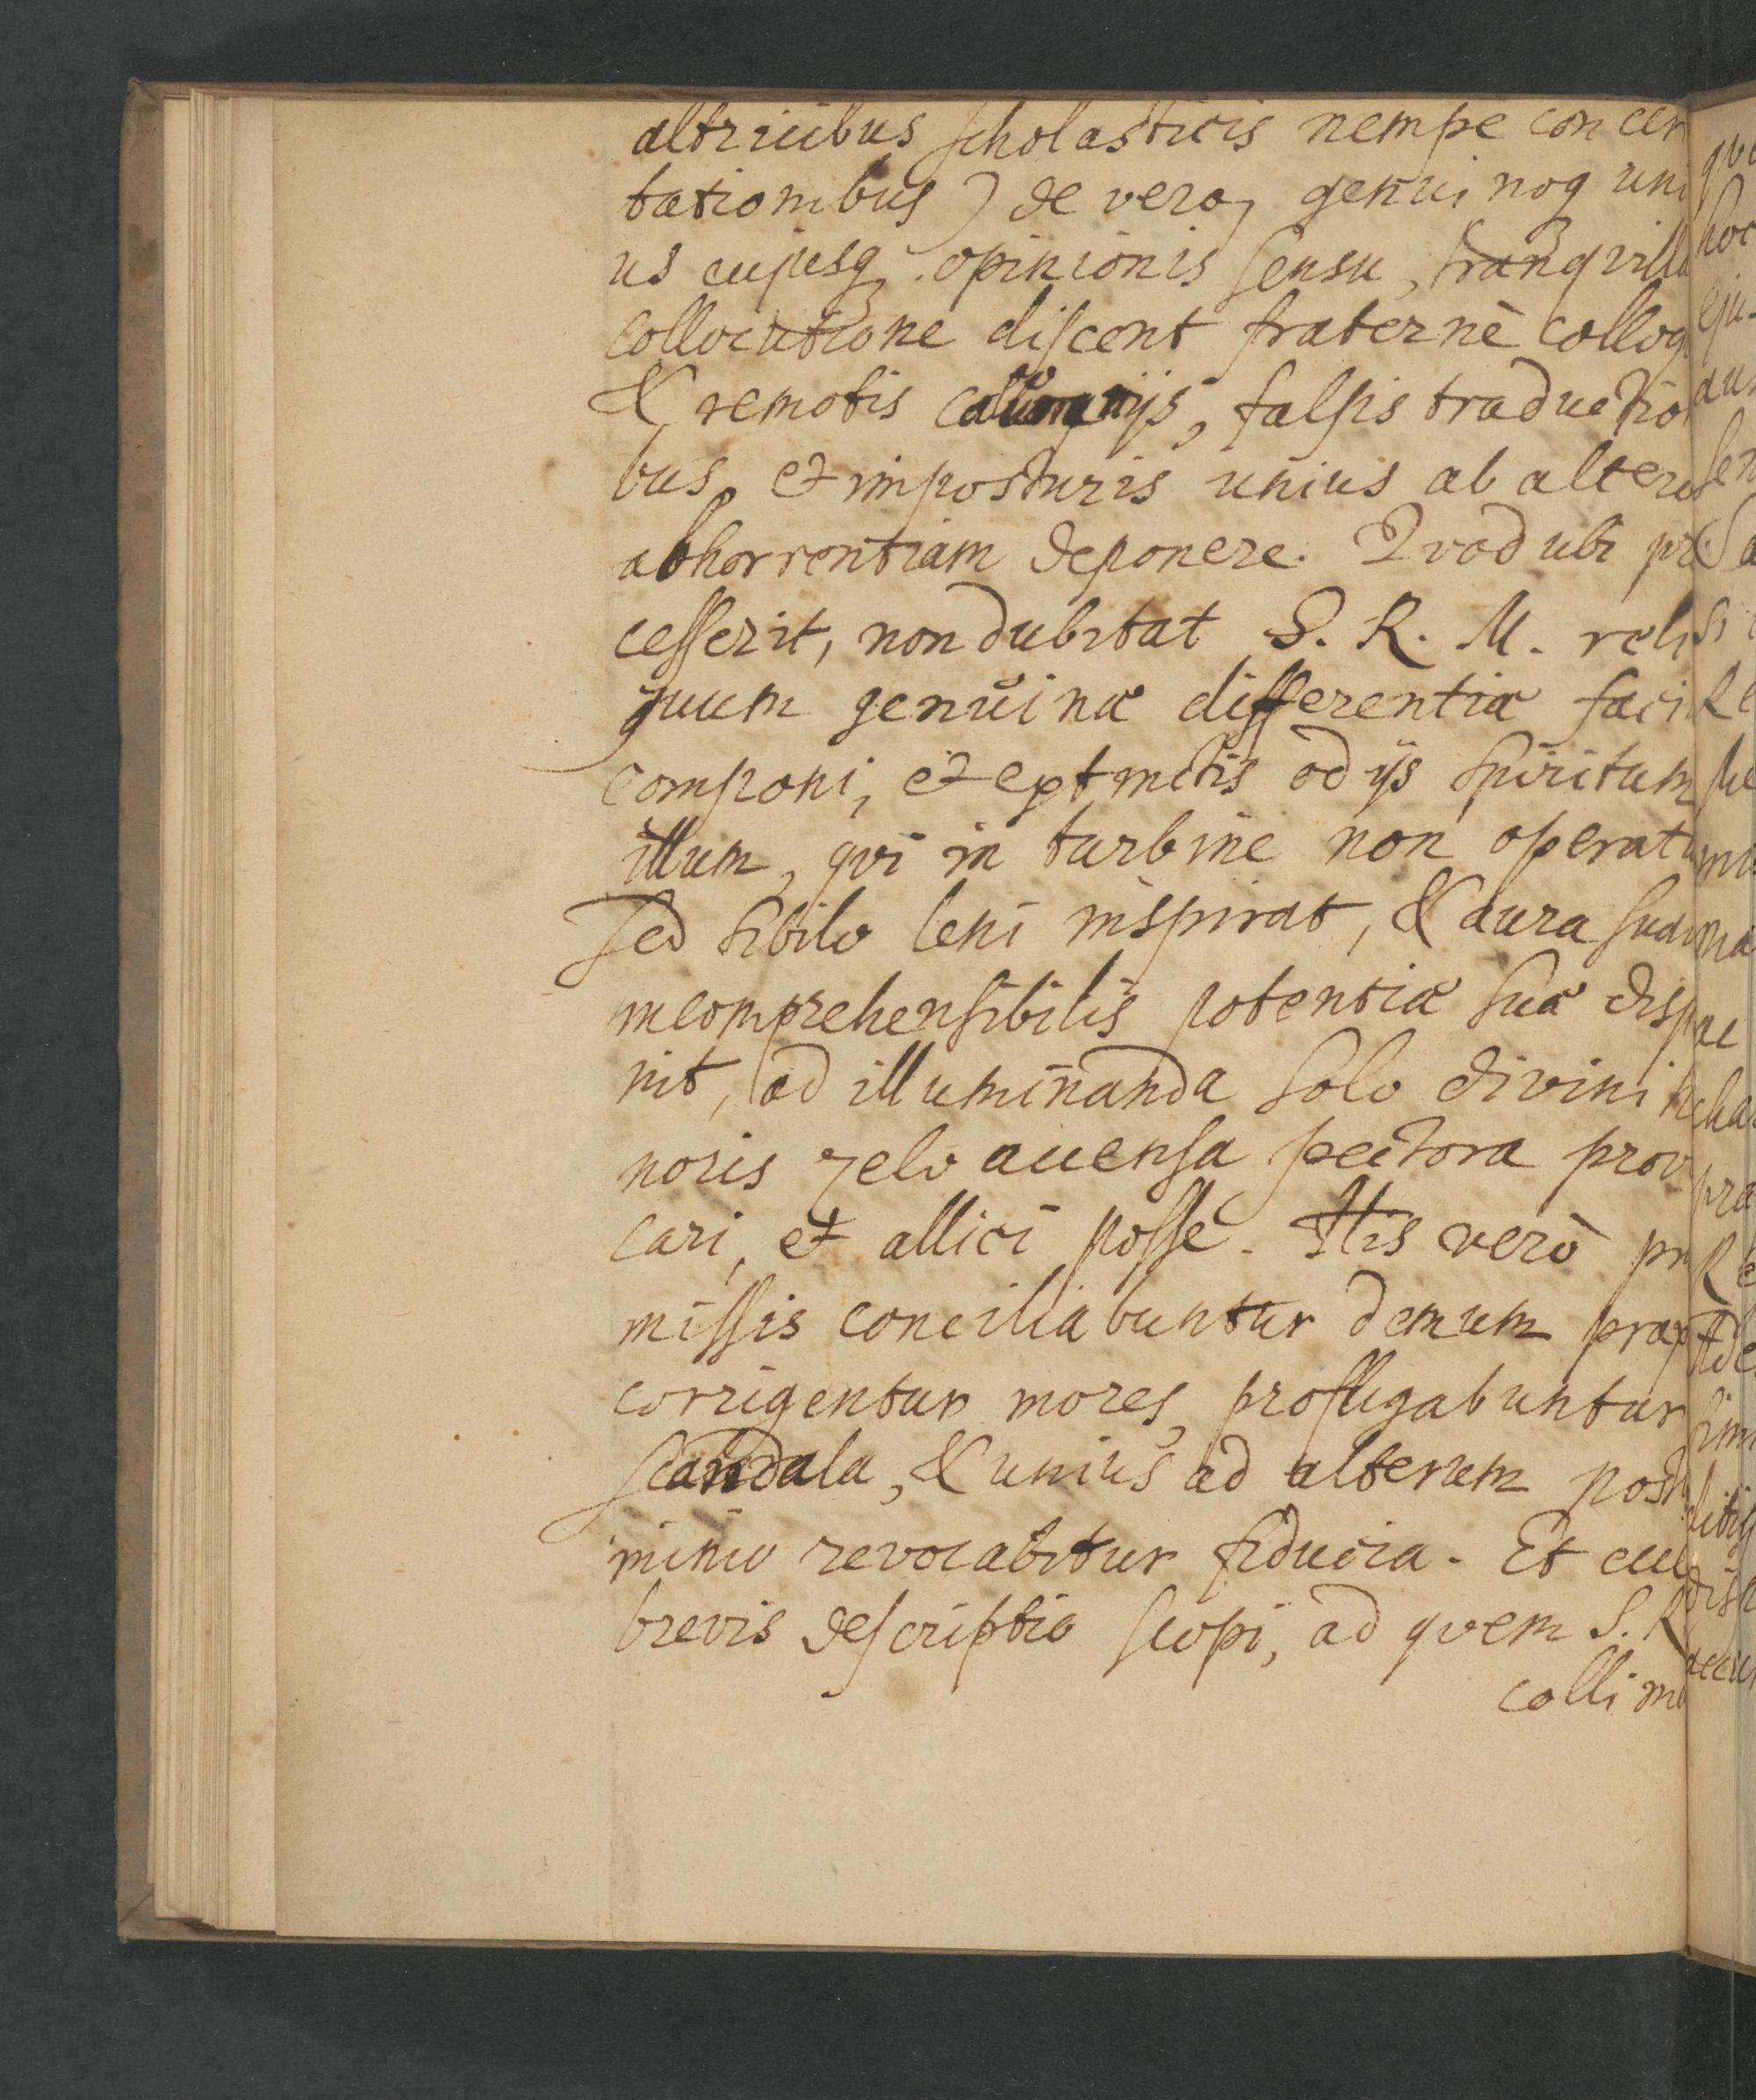 altricibus scholasticis nempe concer
tationibus) de vero, genuinoq uni
us cujusq opinionis sensu, tranqvilla
collocutione discent fraternè colloq
& remotis , falsis traductio
bus, et imposturis unius ab altero
abhorrentiam deponere. Qvod ubi pro
cesserit, non dubitat S. R. M. reli
quum genuinæ differentiæ faci
componi, et extinctis odijs Spiritum
illum, qvi in turbine non operatu
sed sibilo leni inspirat, & aura suav
incomprehensibilis potentiæ suæ disp
nit, ad illuminanda solo divini h
noris zelo accensa pectora prov
cari, et allici posse. His verò pr
missis conciliabuntur demum prax
corrigentur mores, profligabuntur
scandala, & unius ad alterum postli
minio revocabitur fiducia. Et
brevis descriptio scopi, ad qvem S. R
collim
qvi
hoc
eju
aus
sen
Sa
si
Re
pe
mi
ma
ac
cha
pra
Re
Ade
sim
litig
dis